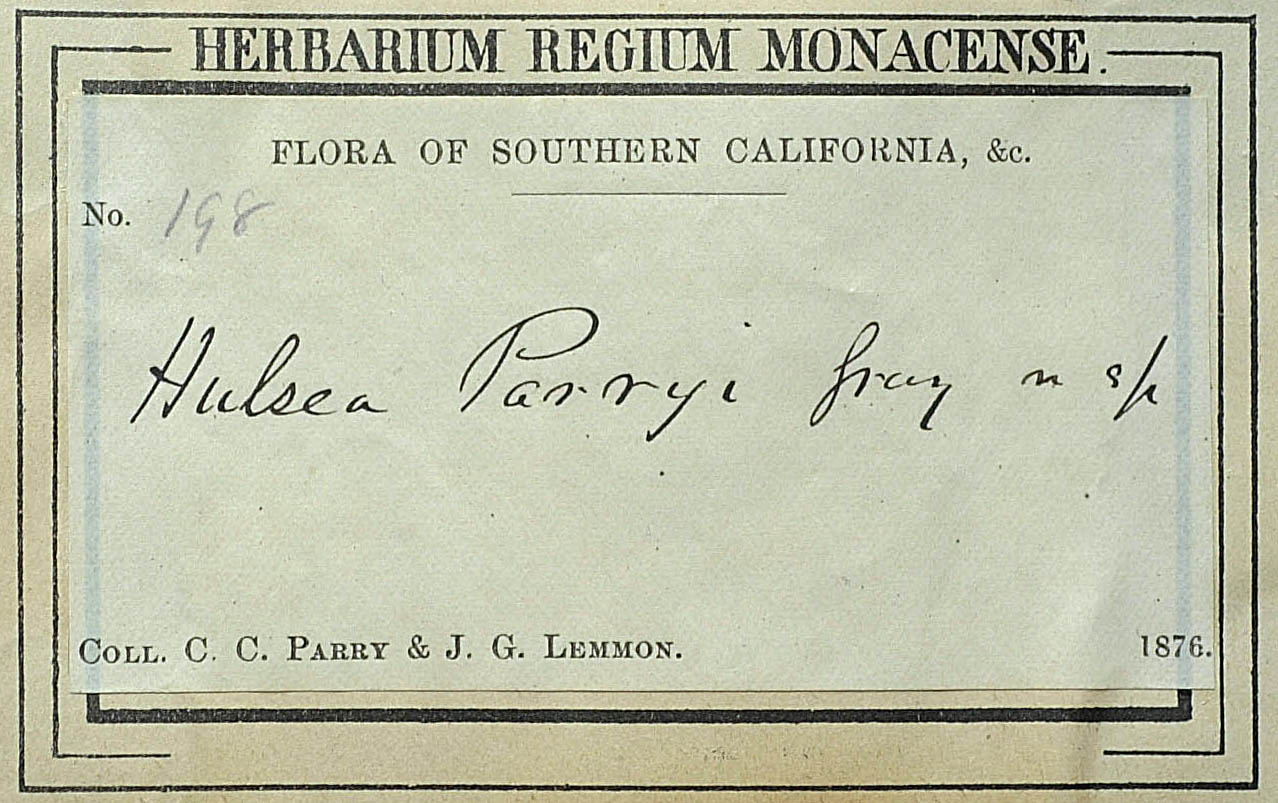 HERBARIUM REGIUM MONACENSE.
FLORA OF SOUTHERN CALIFORNIA, &c.
No. 198
Hulsea Parryi Gray n sp
COLL. C. C. PARRY & J. G. LEMMON. 1876.